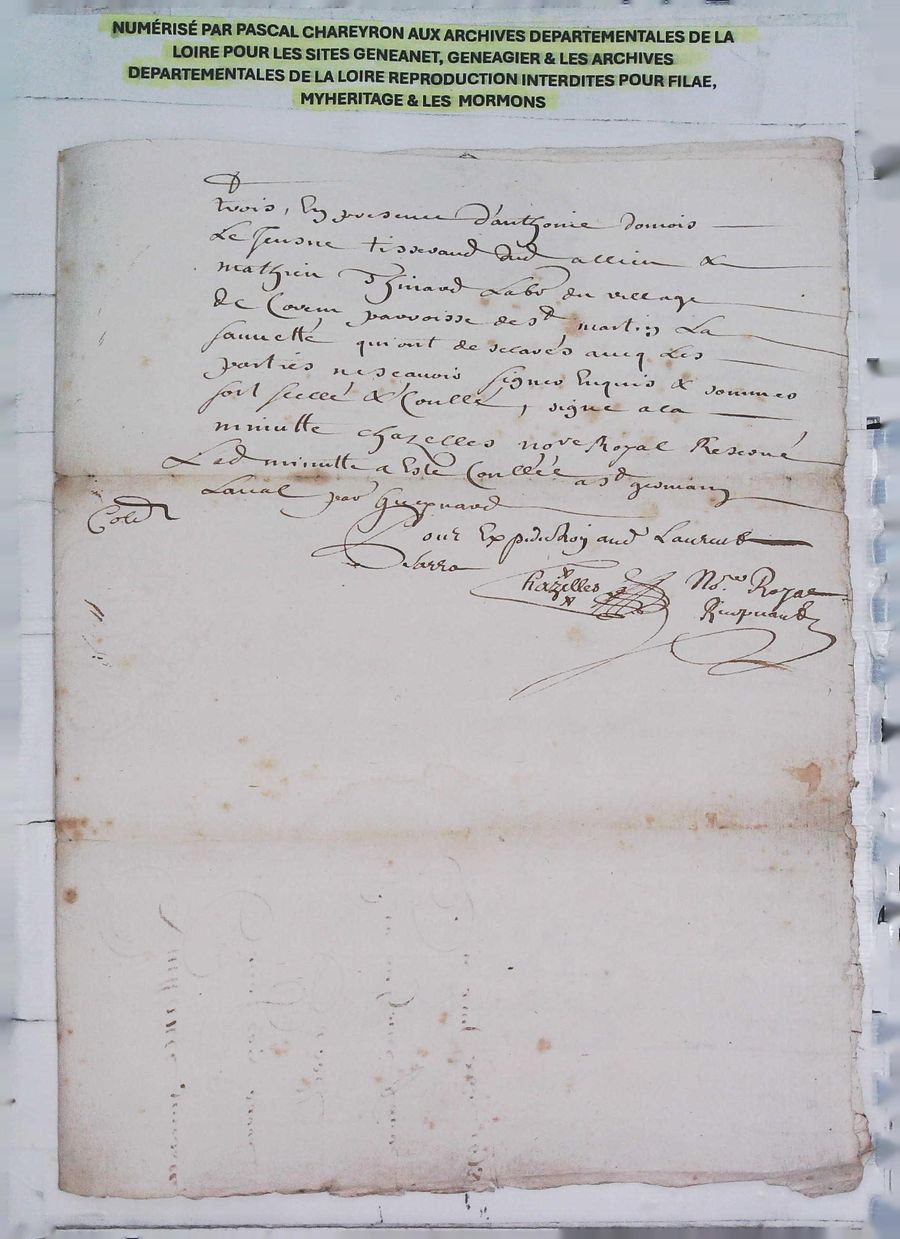 NUMÉRISÉ PAR PASCAL CHAREYRON AUX ARCHIVES DEPARTEMENTALES DE LA
LOIRE POUR LES SITES GENEANET, GENEAGIER & LES ARCHIVES
DEPARTEMENTALES DE LA LOIRE REPRODUCTION INTERDITES POUR FILAE,
MYHERITAGE & LES MORMONS
trois, En presence d'anthoine
Le Jeusne tisserand dud allieu &
mathieu Labr du village
de parroisse de st martin La
sauuetté qui ont desclarés aueq Les
parties ne scauoir signer Enquis & sommes
fort scellé & Coullé, signé a la
minutte chazelles nore Royal
Lad minutte a Esté Coullée a st germain
Laual par
Pour Expedition aud Laurent
Chazelles No.re Royal